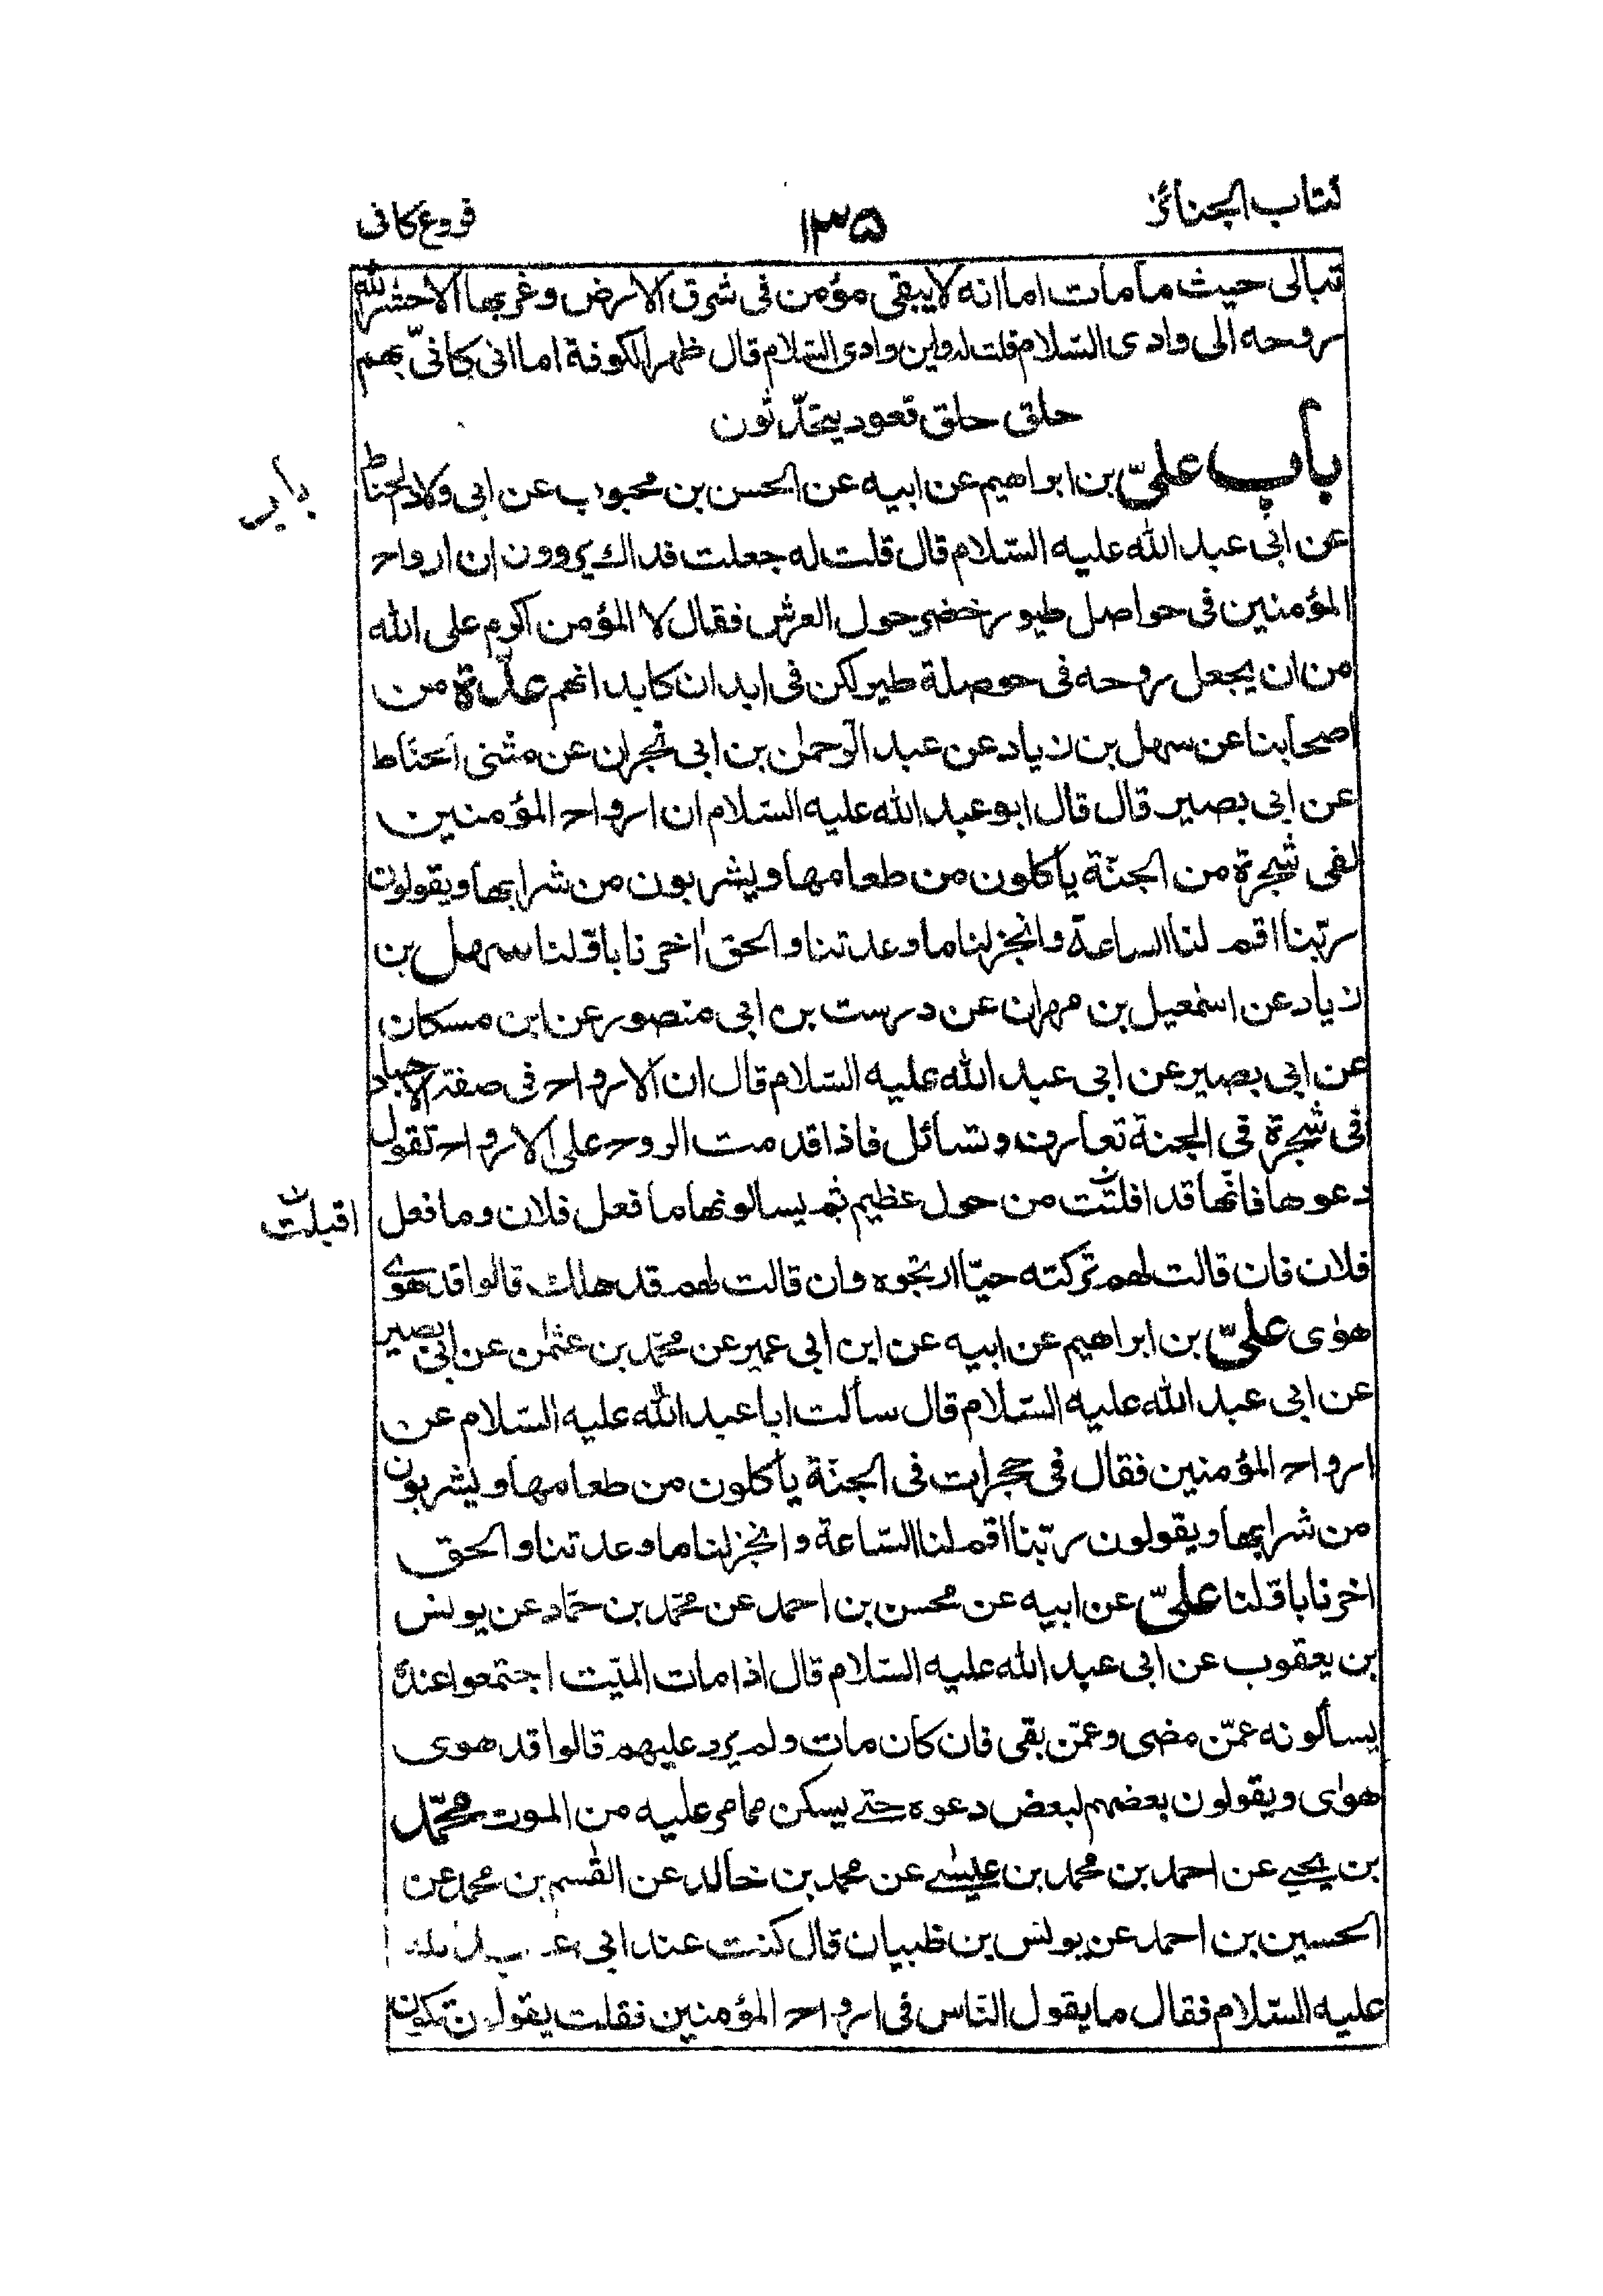 كتاب الجنائز
۱۳۵
فروع كافى
تبالى حيث ما مات اما انه لا يبقى مؤمن فى شرق الارض وغربها الا حشر الله
روحه الى وادى السّلام قلت له واين وادى السّلام قال ظهر الكوفة اما انى كانّى بهم
حلق حلق قعود يتحدّثون
باب علىّ بن ابراهيم عن ابيه عن الحسن بن محبوب عن ابى ولاد الحناط
باب
عن ابى عبد الله عليه السّلام قال قلت له جعلت فداك يروون ان ارواح
المؤمنين فى حواصل طيور خضر حول العرش فقال لا المؤمن اكرم على الله
من ان يجعل روحه فى حوصلة طير لكن فى ابدان كابدانهم عدّة من
اصحابنا عن سهل بن زياد عن عبد الرّحمٰن بن ابى نجران عن مثنى الحنّاط
عن ابى بصير قال قال ابو عبد الله عليه السّلام ان ارواح المؤمنين
لفى شجرة من الجنّة يأكلون من طعامها ويشربون من شرابها ويقولون
ربّنا اقم لنا الساعة وانجز لنا ما وعدتنا والحق اخرنا باوّلنا سهل بن
زياد عن اسمٰعيل بن مهران عن درست بن ابى منصور عن ابن مسكان
عن ابى بصير عن ابى عبد الله عليه السّلام قال ان الارواح فى صفة الاجساد
فى شجرة فى الجنة تعارف وتسائل فاذا قدمت الروح على الارواح تقول
دعوها فانّها قد افلتت من هول عظيم ثم يسالونها ما فعل فلان وما فعل
اقبلت
فلان فان قالت لهم تركته حيّا ارتجوه وان قالت لهم قد هلك قالوا قد هوى
هوٰى علىّ بن ابراهيم عن ابيه عن ابن ابى عمير عن محمّد بن عثمٰن عن ابى بصير
عن ابى عبد الله عليه السّلام قال سألت ابا عبد الله عليه السّلام عن
ارواح المؤمنين فقال فى حجرات فى الجنّة يأكلون من طعامها ويشربون
من شرابها ويقولون ربّنا اقم لنا السّاعة وانجز لنا ما وعدتنا والحق
اخرنا باوّلنا علىّ عن ابيه عن محسن بن احمد عن محمّد بن حمّاد عن يونس
بن يعقوب عن ابى عبد الله عليه السّلام قال اذا مات الميّت اجتمعوا عنده
يسألونه عمّن مضى وعمّن بقى فان كان مات ولم يرد عليهم قالوا قد هوى
هوٰى ويقولون بعضهم لبعض دعوه حتى يسكن مما مر عليه من الموت محمّد
بن يحيى عن احمد بن محمد بن عيسٰى عن محمد بن خالد عن القٰسم بن محمد عن
الحسين بن احمد عن يونس بن ظبيان قال كنت عند ابى عبد الله
عليه السّلام فقال ما يقول النّاس فى ارواح المؤمنين فقلت يقولون تكون